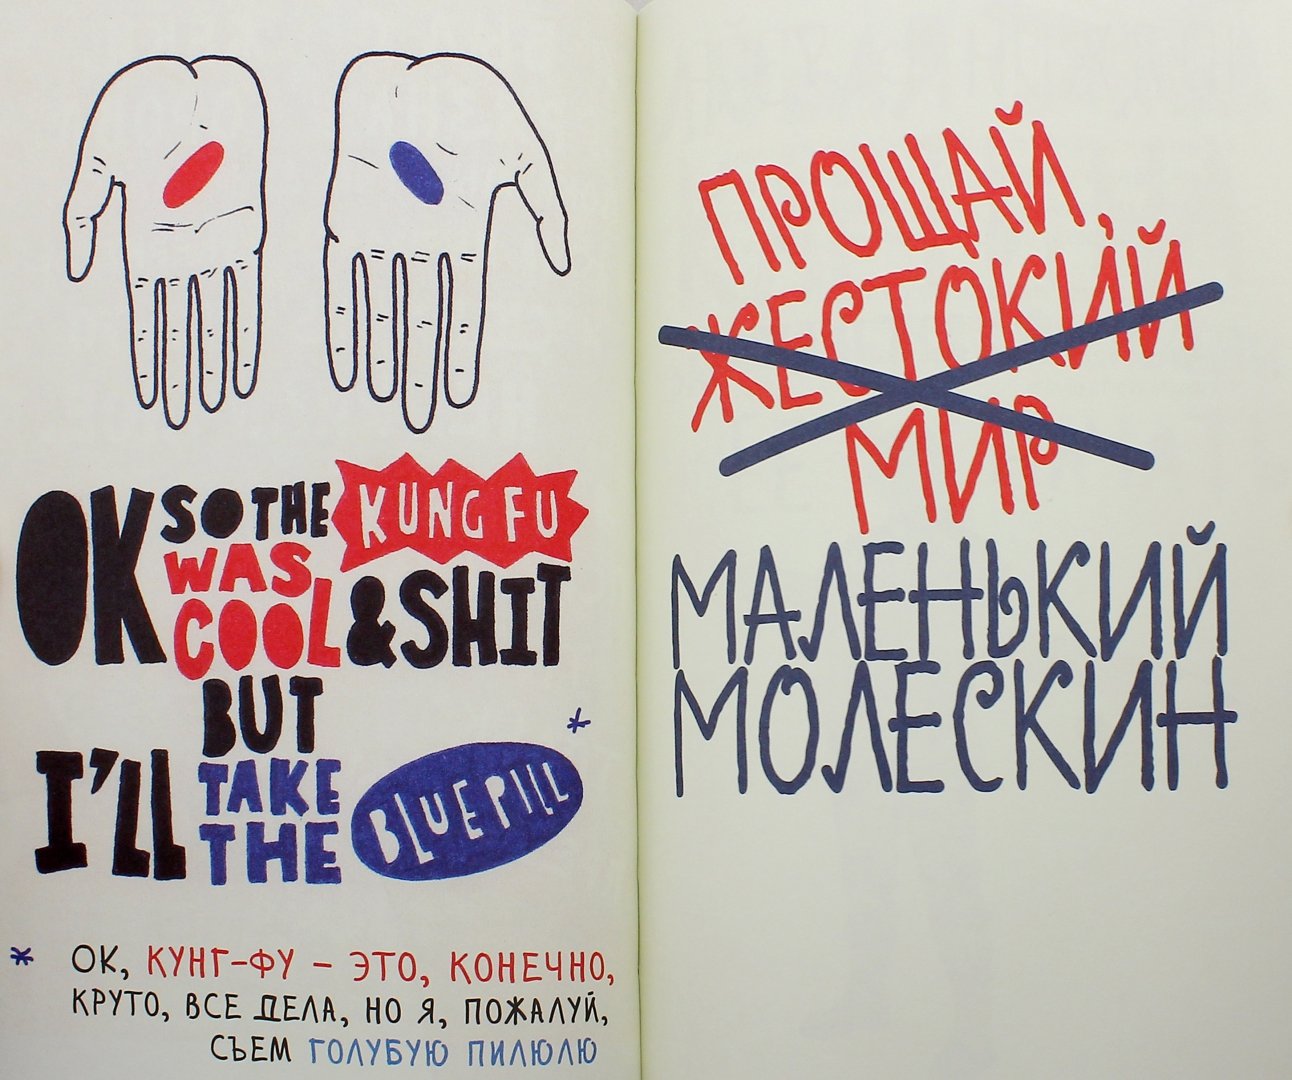 OK SO THE KUNG FU
WAS
COOL & SHIT
BUT
I'LL TAKE
THE BLUE PILL *
* ОК, КУНГ-ФУ – ЭТО, КОНЕЧНО,
КРУТО, ВСЕ ДЕЛА, НО Я, ПОЖАЛУЙ,
СЪЕМ ГОЛУБУЮ ПИЛЮЛЮ
ПРОЩАЙ,
ЖЕСТОКИЙ
МИР
МАЛЕНЬКИЙ
МОЛЕСКИН